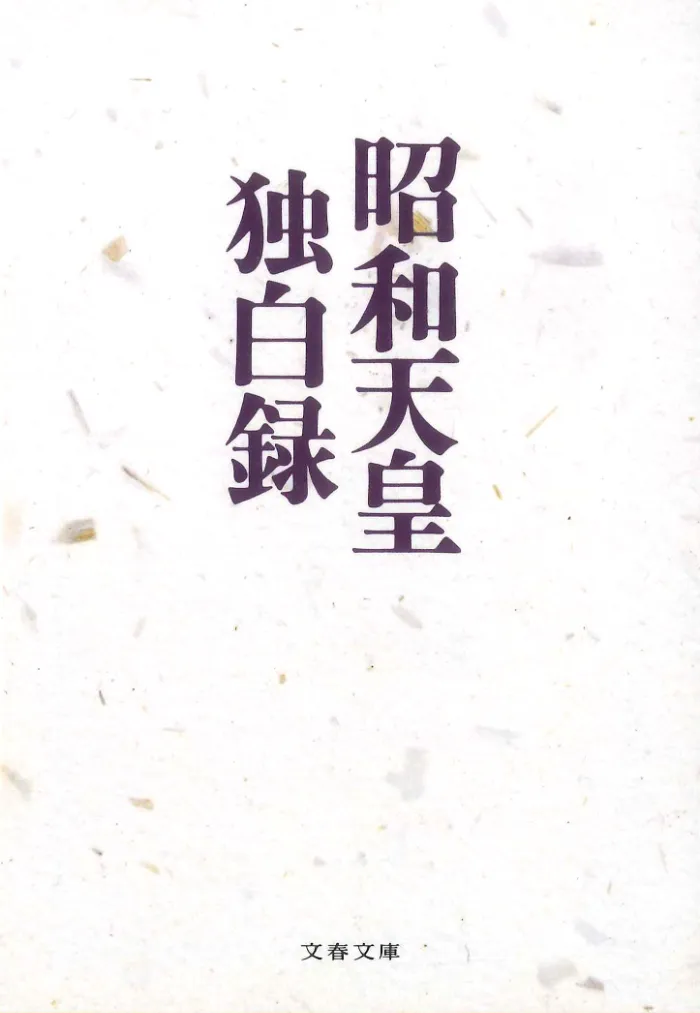 昭和天皇
独白録
文春文庫